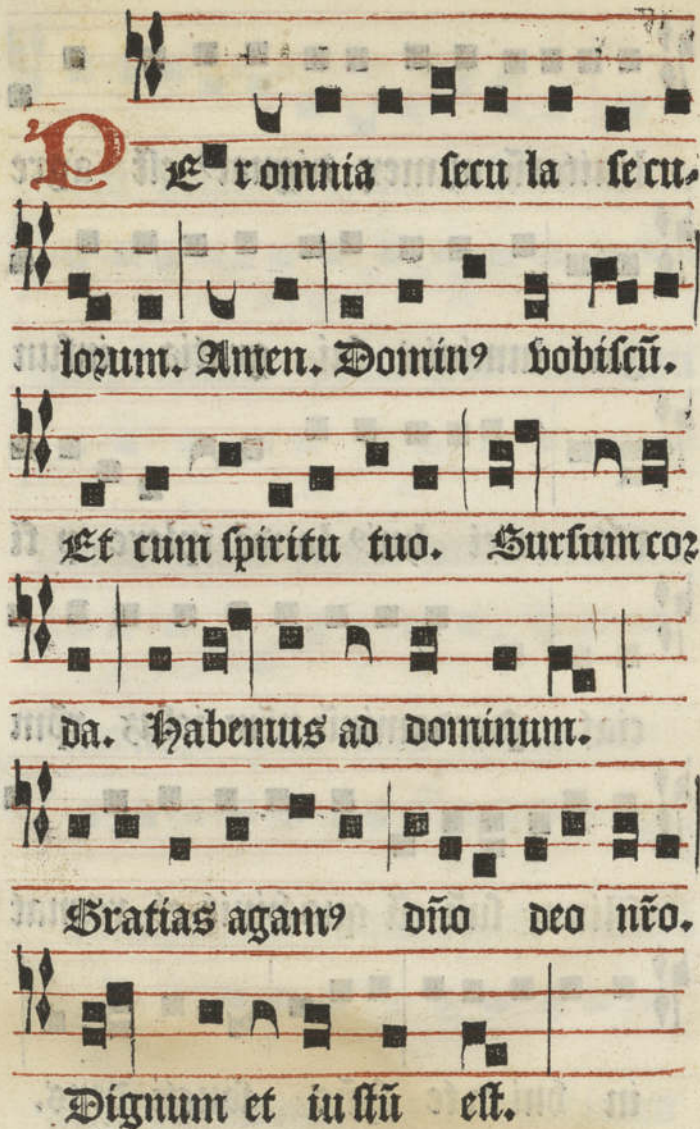 PEr omnia secu la se cu-
lorum. Amen. Dominꝰ vobiscū.
Et cum spiritu tuo. Sursum cor
da. Habemus ad dominum.
Gratias agamꝰ dño deo nr̃o.
Dignum et iu stū est.